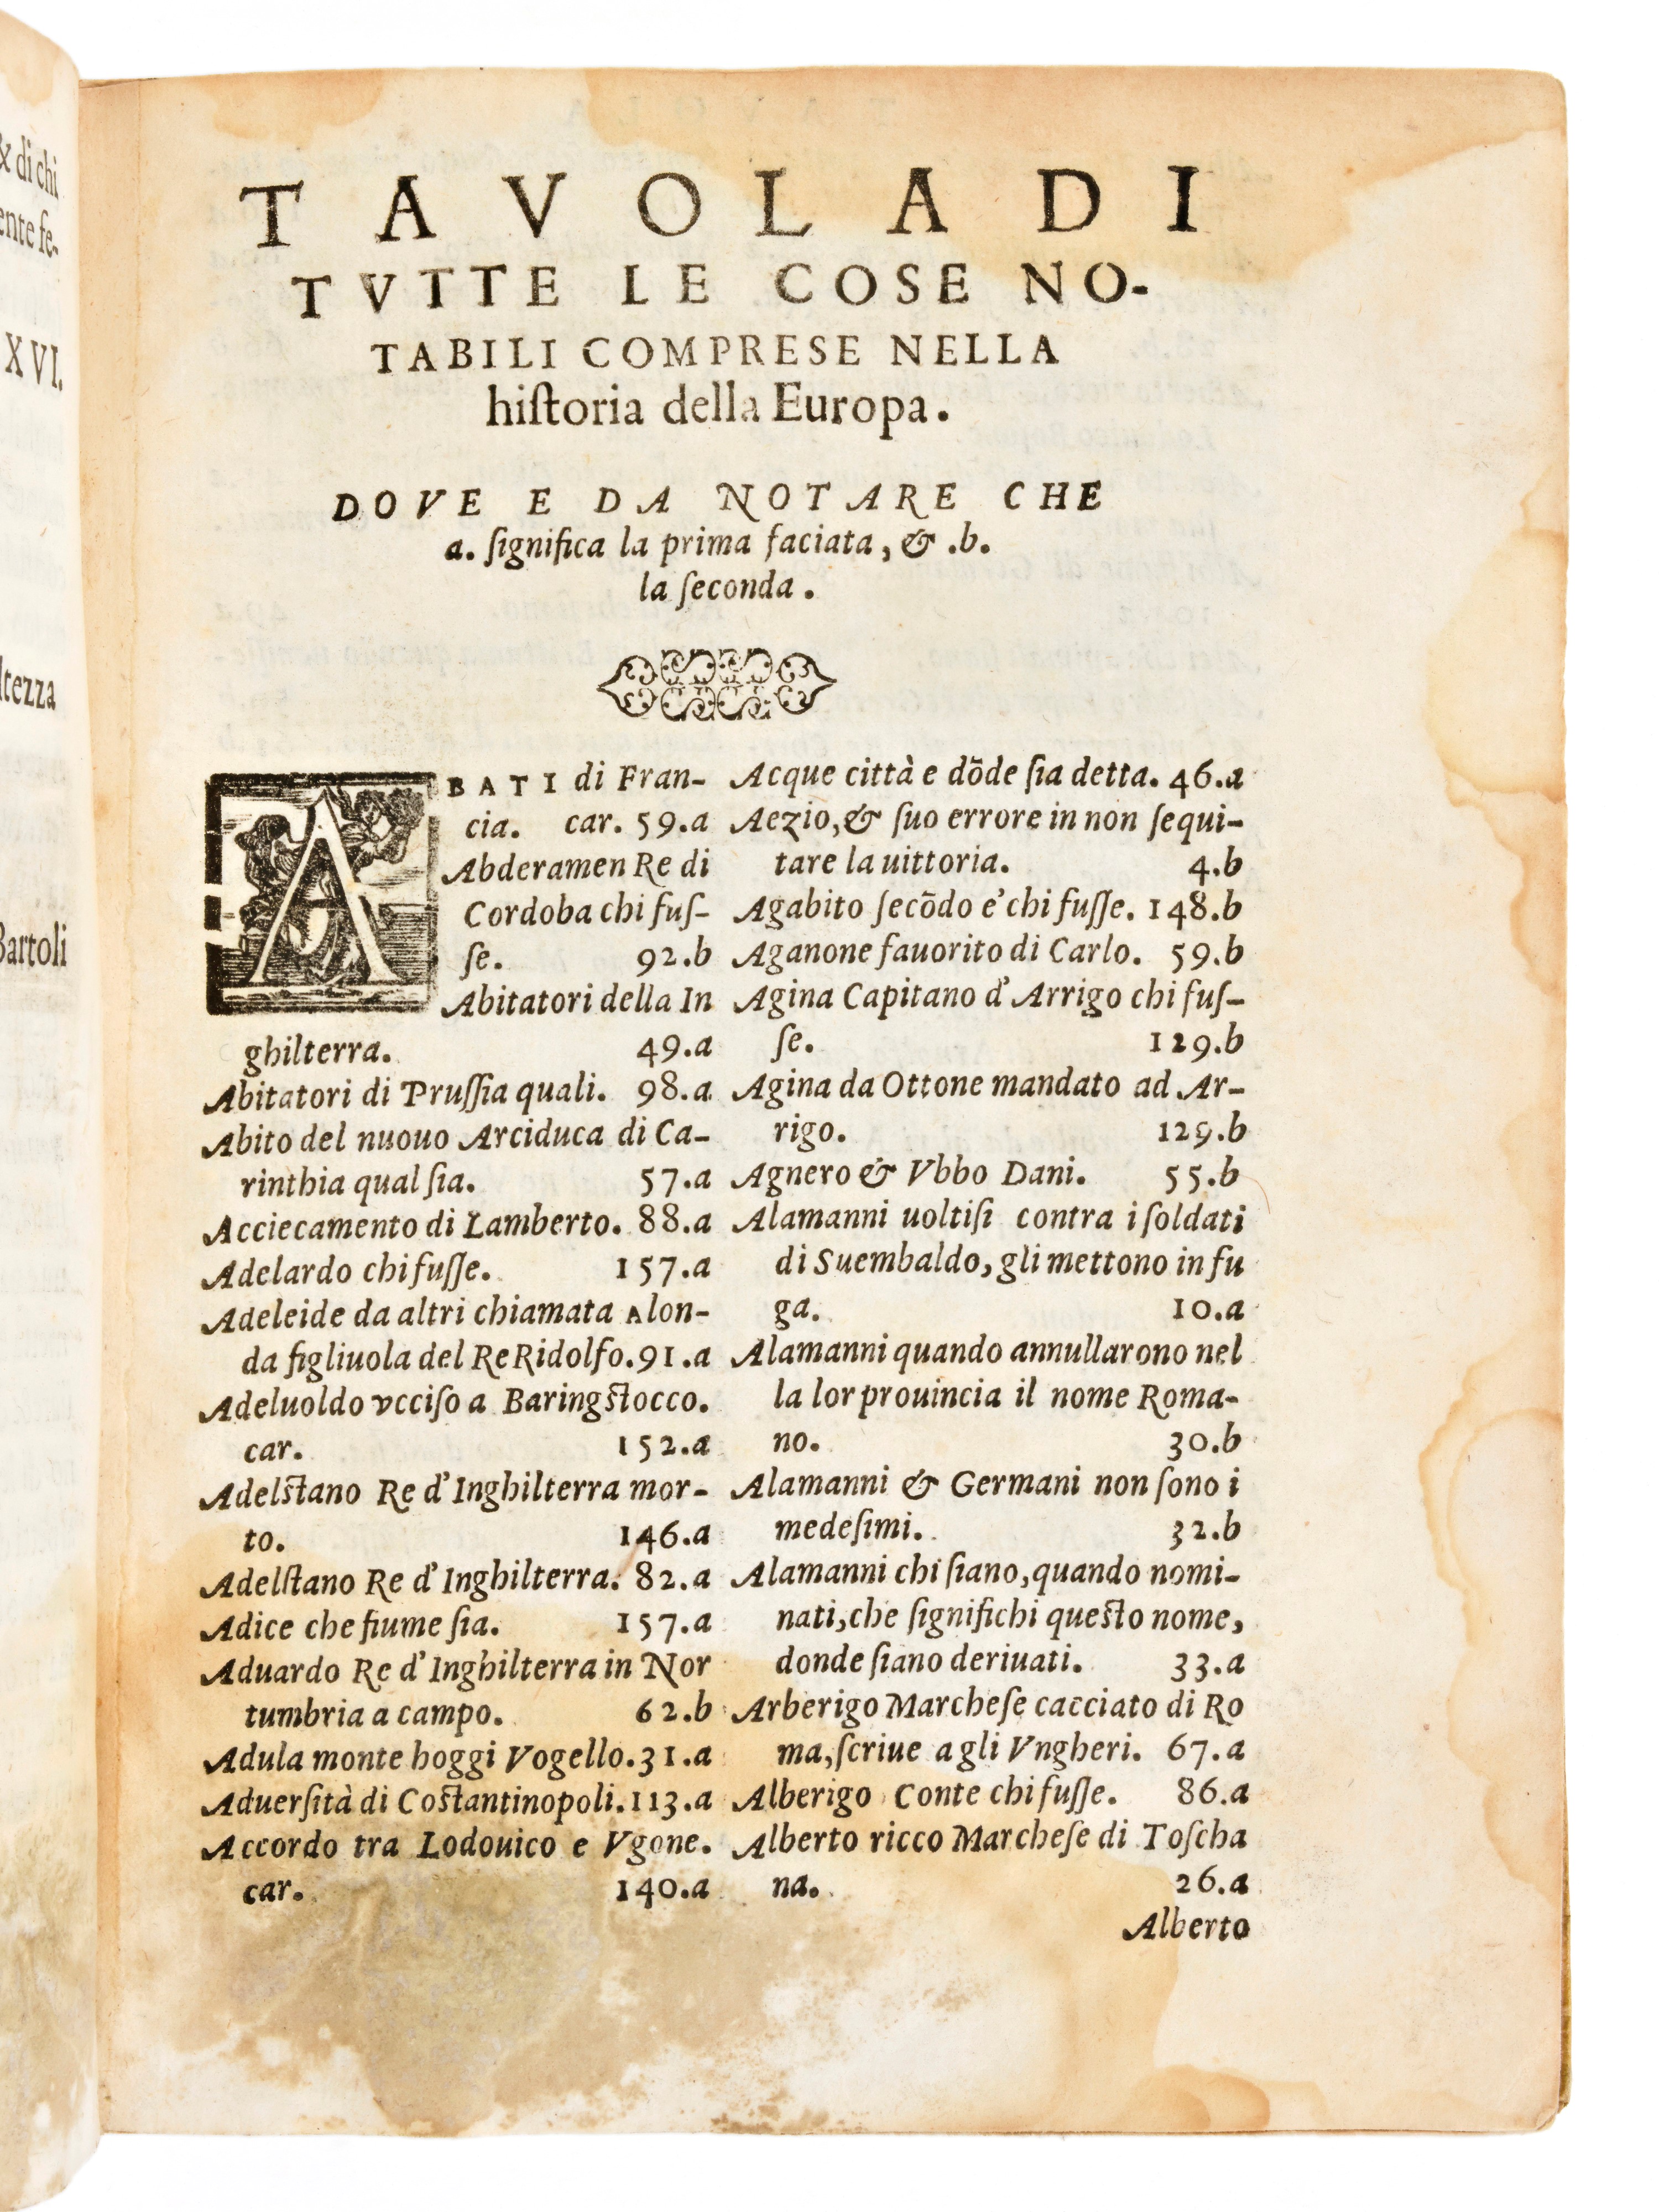 & di chi
ente fe-
XVI.
ltezza
Bartoli
TAVOLA DI
TVTTE LE COSE NO-
TABILI COMPRESE NELLA
hiſtoria della Europa.
DOVE E DA NOTARE CHE
a. ſignifica la prima faciata, & .b.
la ſeconda.
ABATI di Fran-
cia. car. 59.a
Abderamen Re di
Cordoba chi fuſ-
ſe. 92.b
Abitatori della In
ghilterra. 49.a
Abitatori di Pruſſia quali. 98.a
Abito del nuouo Arciduca di Ca-
rinthia qual ſia. 57.a
Acciecamento di Lamberto. 88.a
Adelardo chi fuſſe. 157.a
Adeleide da altri chiamata Alon-
da figliuola del Re Ridolfo. 91.a
Adeluoldo vcciſo a Baringſtocco.
car. 152.a
Adelſtano Re d'Inghilterra mor-
to. 146.a
Adelſtano Re d'Inghilterra. 82.a
Adice che fiume ſia. 157.a
Aduardo Re d'Inghilterra in Nor
tumbria a campo. 62.b
Adula monte hoggi Vogello. 31.a
Aduerſità di Coſtantinopoli. 113.a
Accordo tra Lodouico e Vgone.
car. 140.a
Acque città e dōde ſia detta. 46.a
Aezio, & ſuo errore in non ſequi-
tare la uittoria. 4.b
Agabito ſecōdo e' chi fuſſe. 148.b
Aganone fauorito di Carlo. 59.b
Agina Capitano d'Arrigo chi fuſ-
ſe. 129.b
Agina da Ottone mandato ad Ar-
rigo. 129.b
Agnero & Vbbo Dani. 55.b
Alamanni uoltiſi contra i ſoldati
di Suembaldo, gli mettono in fu
ga. 10.a
Alamanni quando annullarono nel
la lor prouincia il nome Roma-
no. 30.b
Alamanni & Germani non ſono i
medeſimi. 32.b
Alamanni chi ſiano, quando nomi-
nati, che ſignifichi queſto nome,
donde ſiano deriuati. 33.a
Arberigo Marcheſe cacciato di Ro
ma, ſcriue a gli Vngheri. 67.a
Alberigo Conte chi fuſſe. 86.a
Alberto ricco Marcheſe di Toſcha
na. 26.a
Alberto